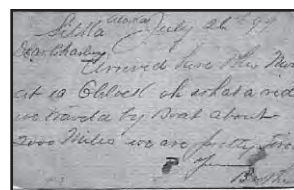 Sitka Alaska July 26th 99
Dear Charley
Arrived here this Mor
at 10 Oclock oh what a ride
we traveld by Boat about
2000 Miles we are pretty
Your